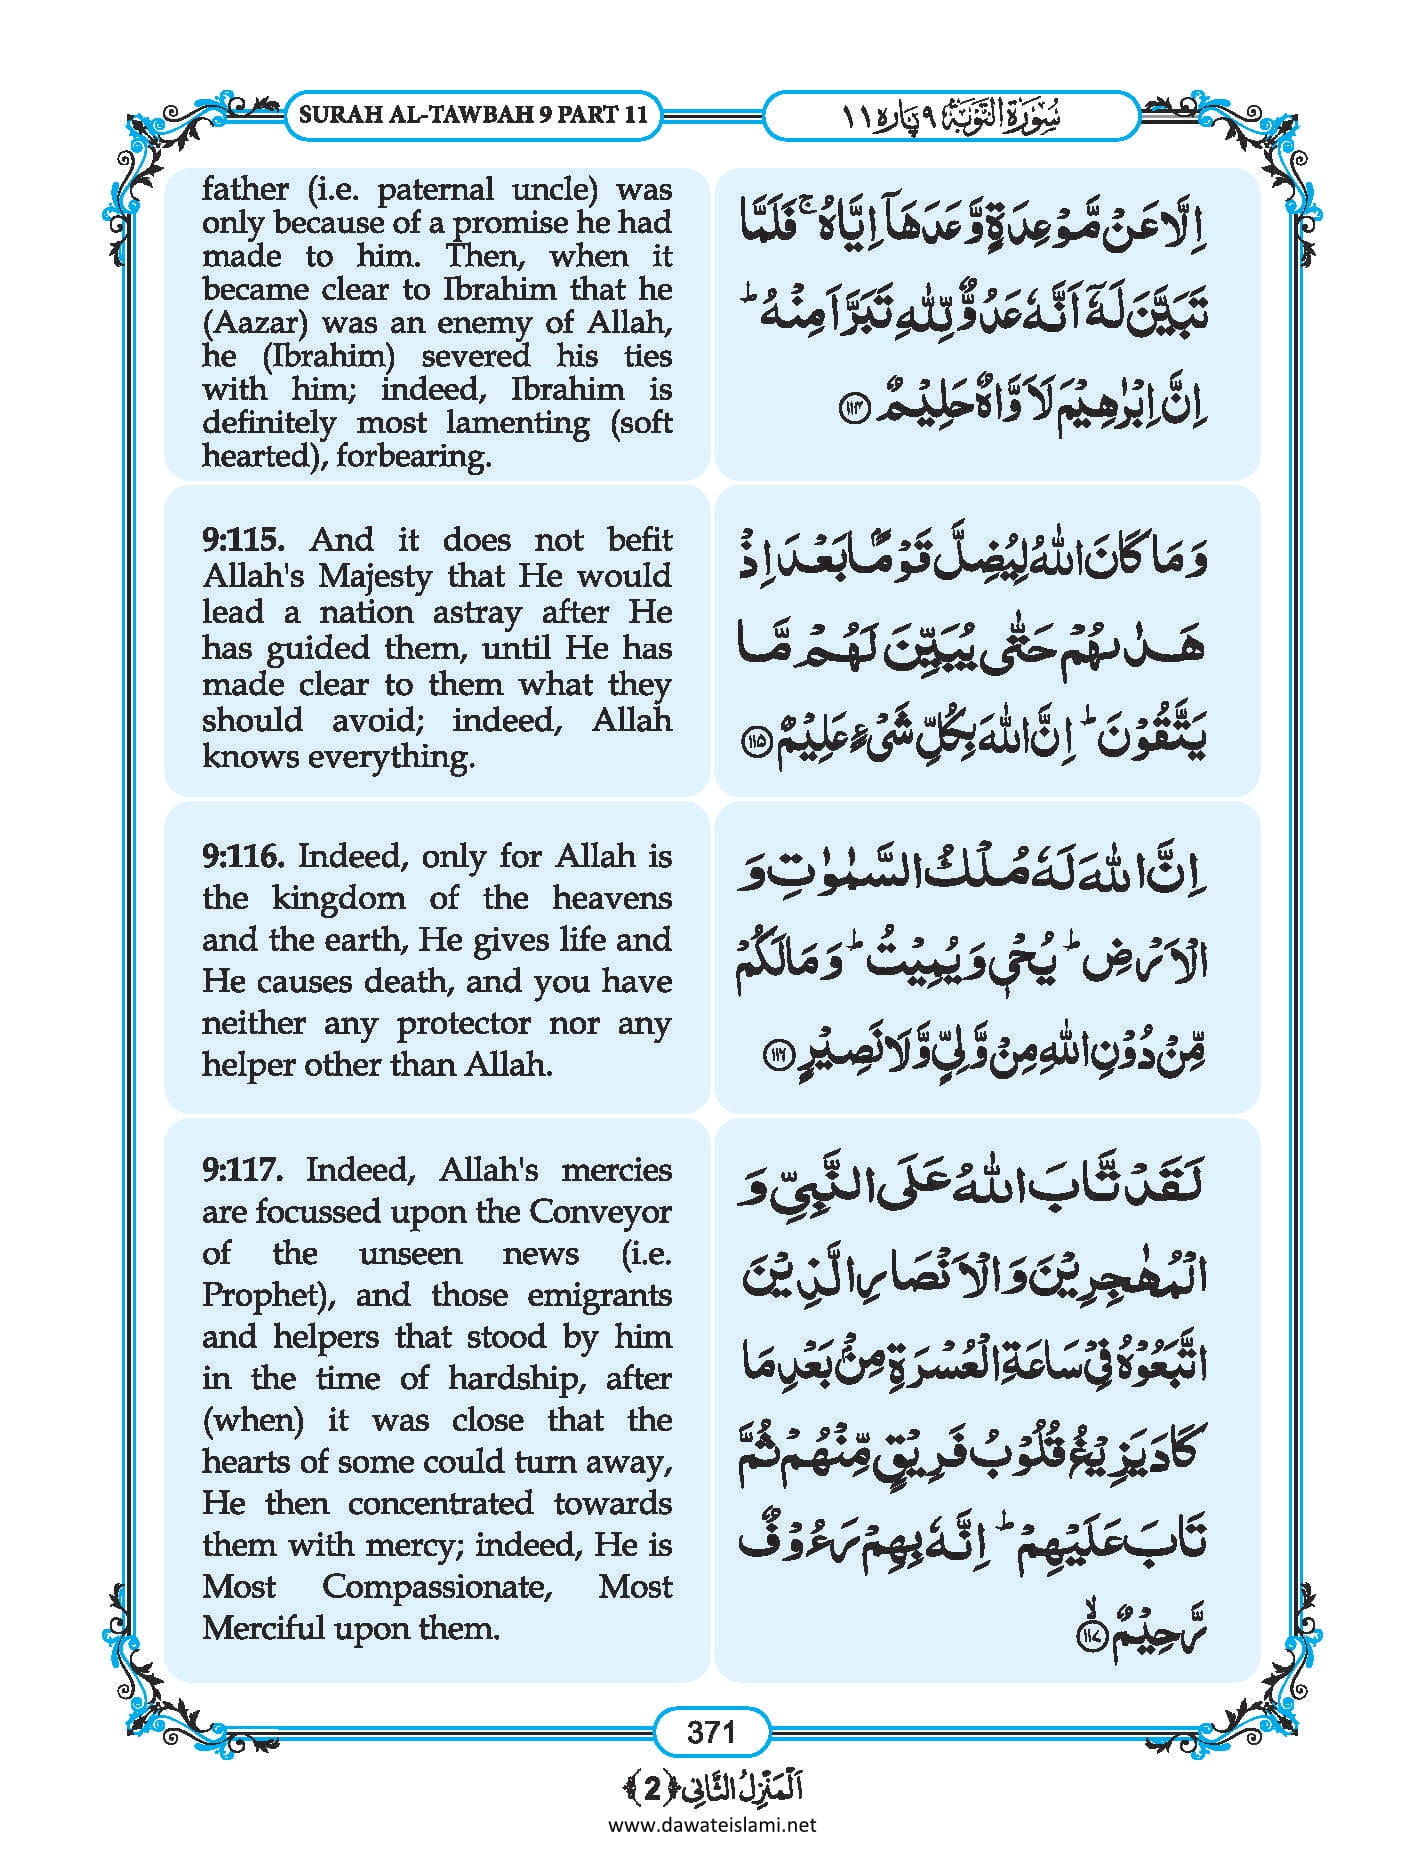 SURAH AL-TAWBAH 9 PART 11
سُوْرَۃُ التَّوْبَۃِ ۹ پارہ ۱۱
father (i.e. paternal uncle) was
only because of a promise he had
made to him. Then, when it
became clear to Ibrahim that he
(Aazar) was an enemy of Allah,
he (Ibrahim) severed his ties
with him; indeed, Ibrahim is
definitely most lamenting (soft
hearted), forbearing.
اِلَّا عَنْ مَّوْعِدَةٍ وَّعَدَهَاۤ اِیَّاهُ ۚ فَلَمَّا
تَبَیَّنَ لَهٗۤ اَنَّهٗ عَدُوٌّ لِّلّٰهِ تَبَرَّاَ مِنْهُ ؕ
اِنَّ اِبْرٰهِیْمَ لَاَوَّاهٌ حَلِیْمٌ ﴿۱۱۴﴾
9:115. And it does not befit
Allah's Majesty that He would
lead a nation astray after He
has guided them, until He has
made clear to them what they
should avoid; indeed, Allah
knows everything.
وَ مَا كَانَ اللّٰهُ لِیُضِلَّ قَوْمًۢا بَعْدَ اِذْ
هَدٰىهُمْ حَتّٰى یُبَیِّنَ لَهُمْ مَّا
یَتَّقُوْنَ ؕ اِنَّ اللّٰهَ بِكُلِّ شَیْءٍ عَلِیْمٌ ﴿۱۱۵﴾
9:116. Indeed, only for Allah is
the kingdom of the heavens
and the earth, He gives life and
He causes death, and you have
neither any protector nor any
helper other than Allah.
اِنَّ اللّٰهَ لَهٗ مُلْكُ السَّمٰوٰتِ وَ
الْاَرْضِ ؕ یُحْیٖ وَ یُمِیْتُ ؕ وَ مَا لَكُمْ
مِّنْ دُوْنِ اللّٰهِ مِنْ وَّلِیٍّ وَّ لَا نَصِیْرٍ ﴿۱۱۶﴾
9:117. Indeed, Allah's mercies
are focussed upon the Conveyor
of the unseen news (i.e.
Prophet), and those emigrants
and helpers that stood by him
in the time of hardship, after
(when) it was close that the
hearts of some could turn away,
He then concentrated towards
them with mercy; indeed, He is
Most Compassionate, Most
Merciful upon them.
لَقَدْ تَّابَ اللّٰهُ عَلَى النَّبِیِّ وَ
الْمُهٰجِرِیْنَ وَ الْاَنْصَارِ الَّذِیْنَ
اتَّبَعُوْهُ فِیْ سَاعَةِ الْعُسْرَةِ مِنْۢ بَعْدِ مَا
كَادَ یَزِیْغُ قُلُوْبُ فَرِیْقٍ مِّنْهُمْ ثُمَّ
تَابَ عَلَیْهِمْ ؕ اِنَّهٗ بِهِمْ رَءُوْفٌ
رَّحِیْمٌ ﴿۱۱۷﴾ۙ
371
اَلْمَنْزِلُ الثَّانِی ﴿2﴾
www.dawateislami.net